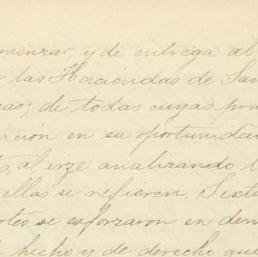 monzar, y de entrega al
las Haciendas de San
cas; de todas cuyas pru
ación en su oportunidad
al irse analizando
ellas se refieren. Sext
se esforzaron en dem
hecho y de derecho que